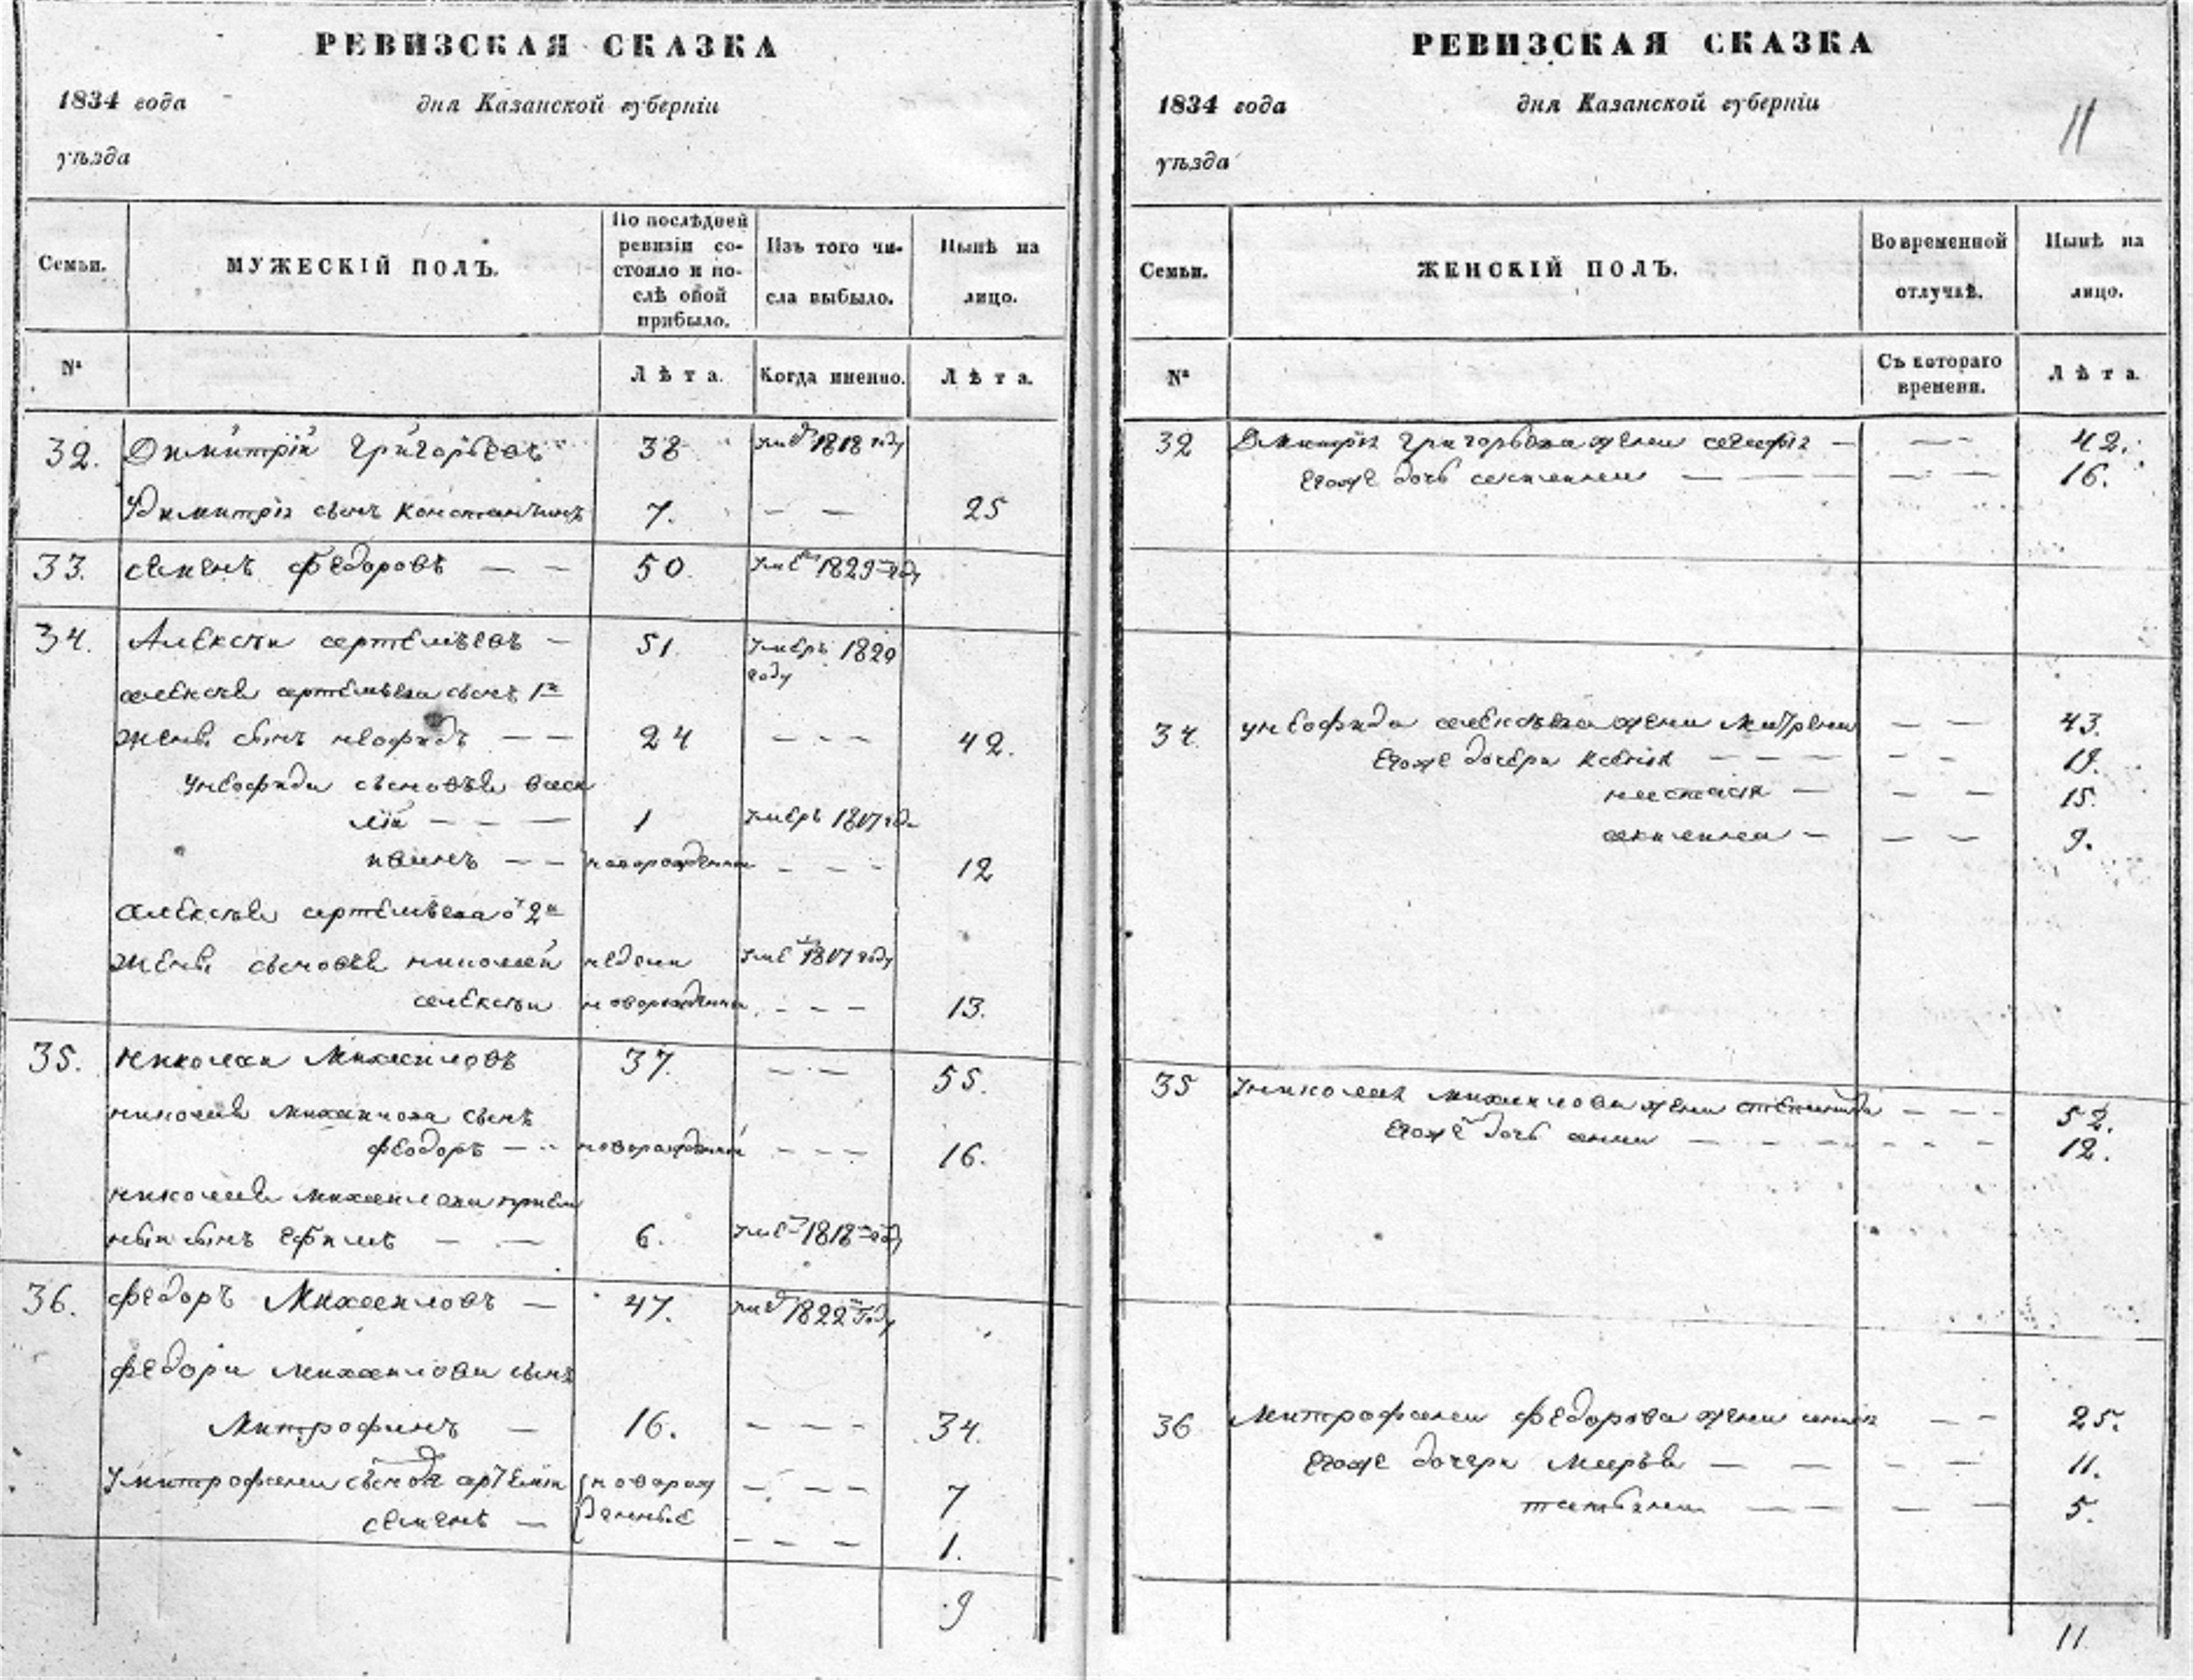 РЕВИЗСКАЯ СКАЗКА
1834 года дня Казанской губерніи
уѣзда
Семьи. МУЖЕСКІЙ ПОЛЪ. По послѣдней ревизіи со-стояло и по-слѣ оной прибыло. Изъ того чи-сла выбыло. Нынѣ на лицо.
№ Лѣта. Когда именно. Лѣта.
32. Димитрій Григорьевъ 38 1818 году
Димитрія сынъ Константинъ 7. — — 25
33. Семенъ Федоровъ — — 50. 1829 году
34. Алексѣи Артемьевъ — 51. умеръ 1829
году
Алексѣя Артемьева сынъ 1й
жены сынъ Неофидъ — — 24 — — — 42.
Унеофида сыновья Васи
лій — — — 1 умеръ 1817 году
Иванъ — — новорожденны — — — 12
Алексѣя Артемьева 2й
жены сыновья Николай недели 1817 году
Алексѣи новорожденны — — — 13.
35. Николаи Михаиловъ 37. — — 55.
Николая Михаилова сынъ
Феодоръ — — новорожденный — — — 16.
Николая Михаилова прием
ныи сынъ Ефимъ — — 6. 1818 году
36. Федоръ Михаиловъ — 47. 1822 году
Федора Михаилова сынъ
Митрофанъ — 16. — — — 34.
Умитрофана Артемии новорож — — — 7
Семенъ — денные — — — 1.
9
РЕВИЗСКАЯ СКАЗКА
1834 года дня Казанской губерніи 11
уѣзда
Семьи. ЖЕНСКІЙ ПОЛЪ. Во временной отлучкѣ. Нынѣ на лицо.
№ Съ котораго времени. Лѣта.
32 Дмитрія Григорьева жена — — — 42.
Егоже дочь — — — — 16.
34. Унеофида Алексѣева жена Матрена — — 43.
Егоже дочери Ксенія — — — — — 19.
Настасія — — — 15.
Акилина — — — 9.
35 Униколая Михаилова жена Степанида — — — 52.
Егоже дочь Анна — — — — — — 12.
36 Митрофана Федорова жена — — 25.
Егоже дочери Марья — — — — — 11.
Татьяна — — — — 5.
11